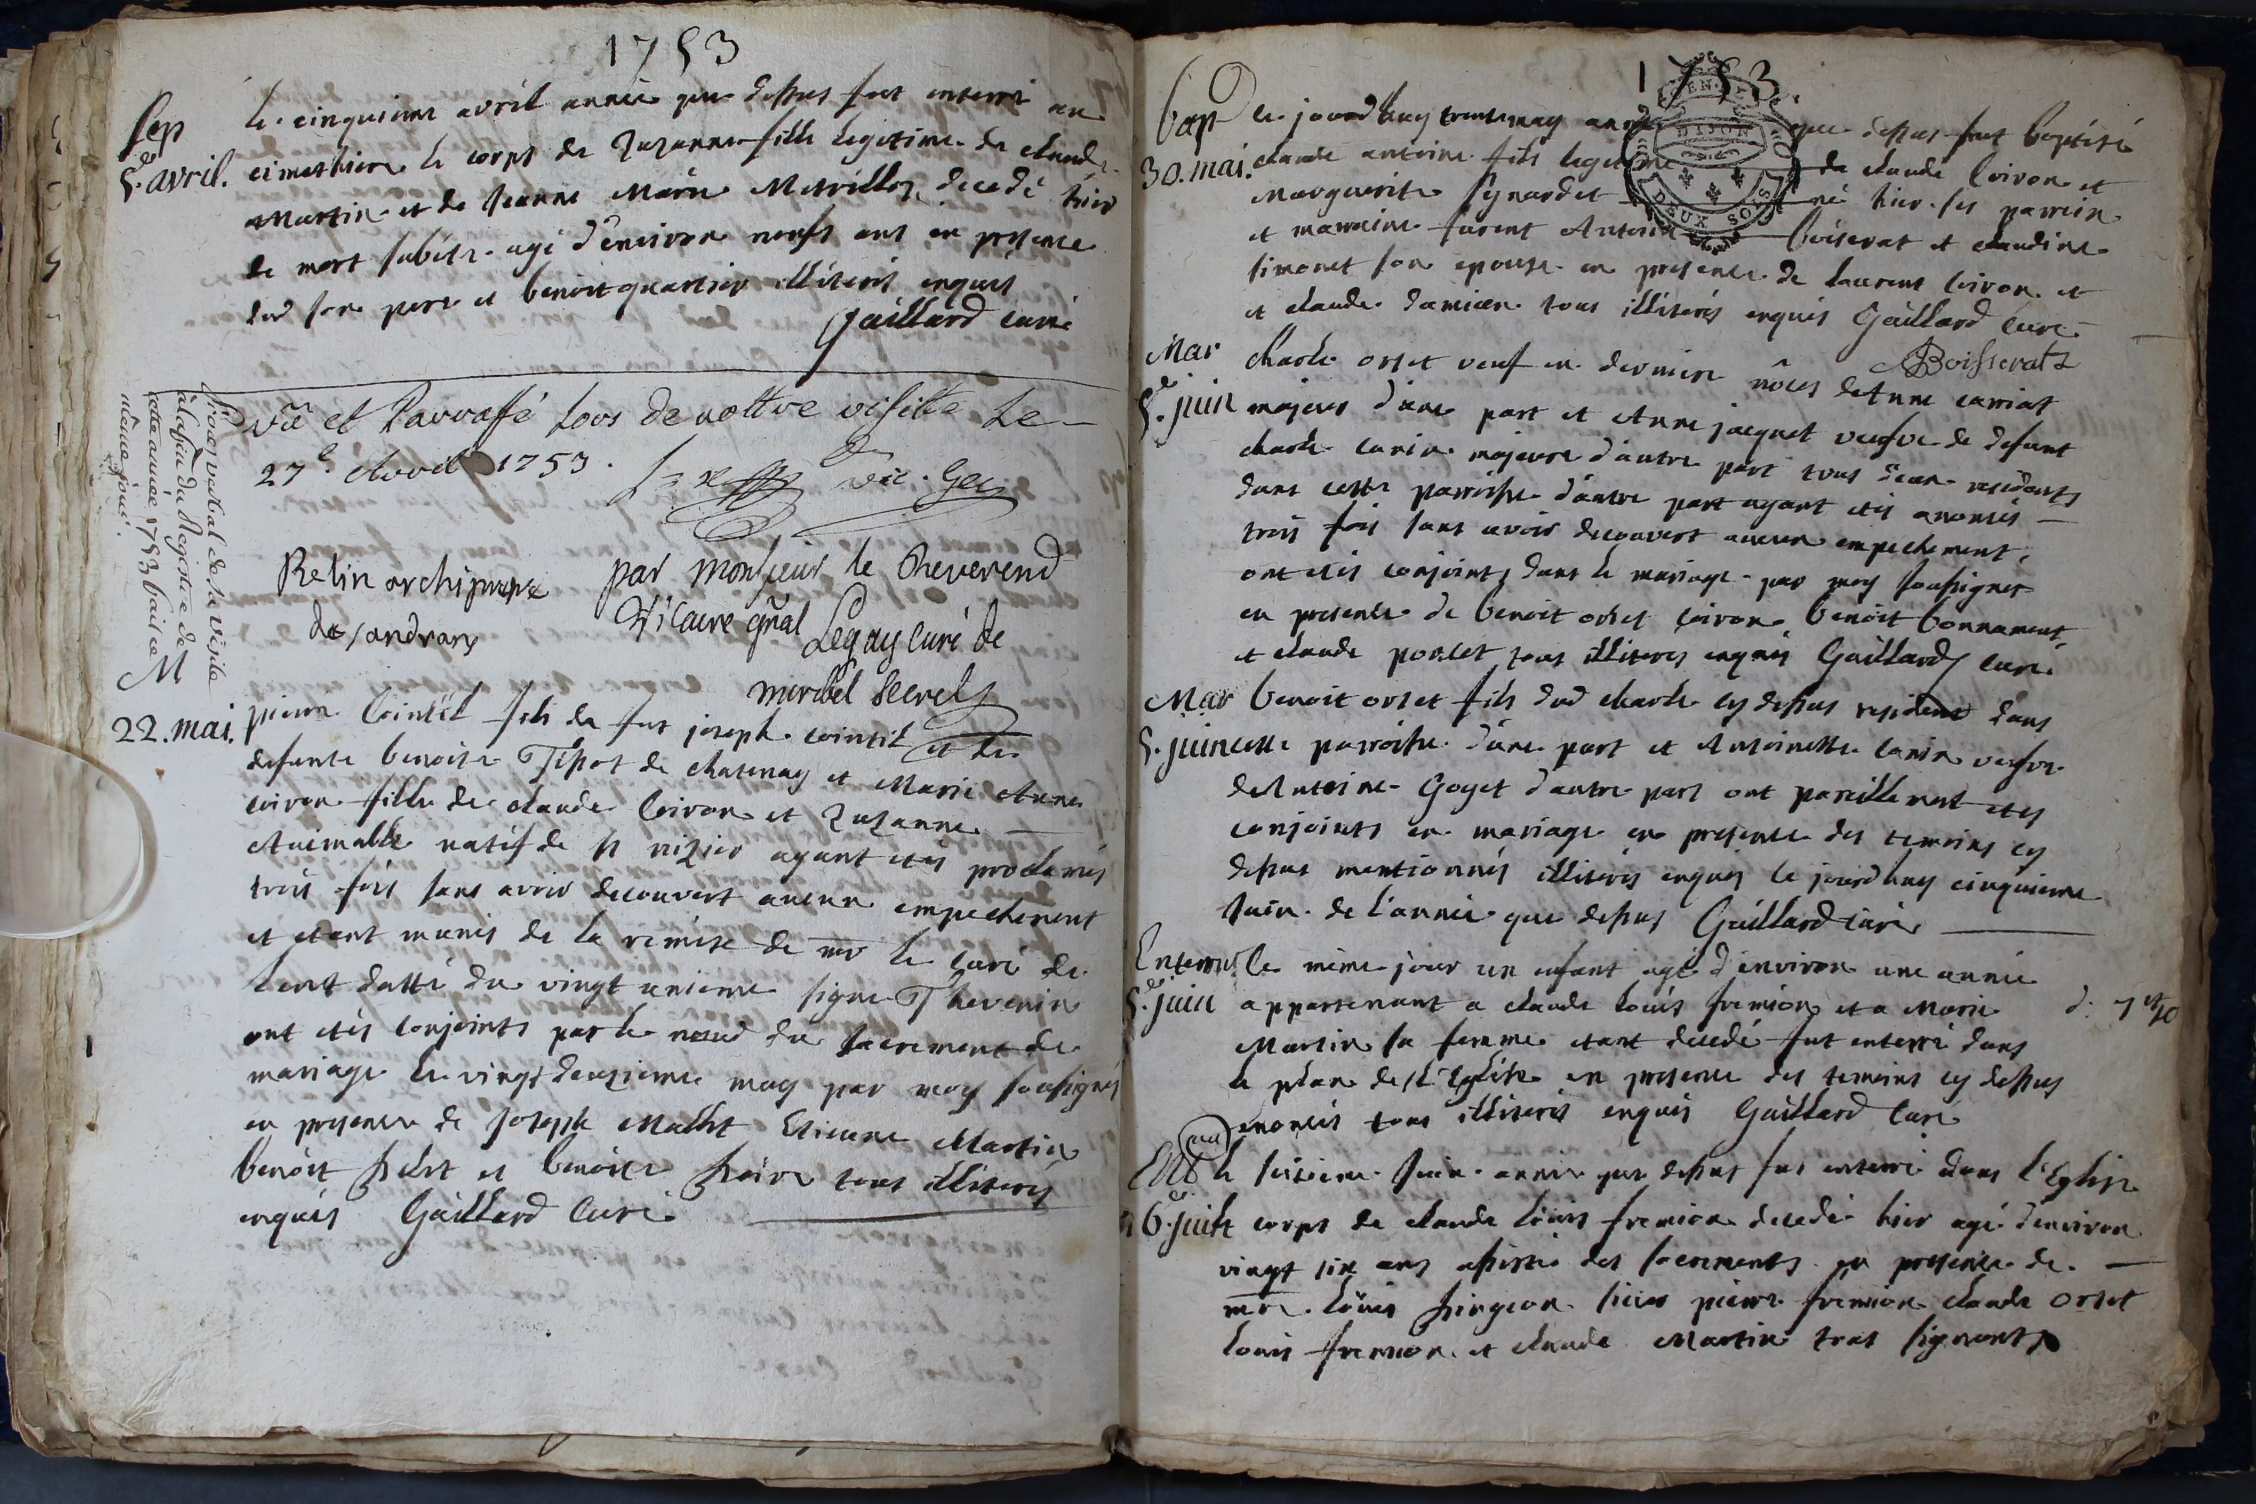 1753
Sep
5.e avril.
le cinquieme avril année que dessus fut enterré au
cimethiere le corps de Suzanne fille legitime de claude
Martin et de Jeanne Marie Metrillot decedé hier
de mort subite agé d'environ neufs ans en presence
dud son pere et benoit quartier illiterés enquis
Gaillard curé
Vû et Parraffé Lors de nottre visitte Le
27e. Avril 1753. vic. Ge
procez verbal de la visite
à la fin du Registre de
cette année 1753 fait ce
même jour.
Relin archiprêtre
de sandrans
par Monsieur le Reverend
Vicaire gñal Legay curé de
miribel secret
M
22. mai.
pierre Cointil fils de fut joseph cointil et de
defunte benoite Tissot de chatenay et Marie Anne
coiron fille de claude Coiron et Suzanne
Aneimable natif de st nizier ayant étés proclamés
trois fois sans avoir decouvert aucun empechement
et etant munis de la remise de mr le curé de
Lent datté du vingt unieme signe Thevenin
ont etés conjoints par le noeud du sacrement de
mariage le vingt deuxieme may par moy soussignés
en presence de joseph Etienne Martin
benoit et benoite tous illiterés
enquis Gaillard Curé
1753.
GEN. DE DIJON
DEUX SOLS
bap
30. mai.
le jourdhuy trente may année que dessus fut baptisé
claude antoine fils legitime de claude Coiron et
Marguerite Genardet né hier ses parrein
et marraine furent Antoine boiserat et claudine
simonet son epouse en presence de laurent Coiron et
et claude damien tous illiterés enquis Gaillard Cure
Boisserat
Mar
5.e juin
charle orset veuf en derniere nôces de Anne carriat
majeur d'une part et Anne jacquet veufve de defunt
charle carin majeure d'autre part tous deux residents
dans cette parroisse d'autre part ayant etés anoncés
trois fois sans avoir decouvert aucun empechement,
ont etés conjoints dans le mariage par moy soussigner
en presence de benoit orset coiron benoit bonnament
et claude poncet tous illiteres enquis Gaillard Curé
Mar
5. juin
benoit orset fils dud charle cy dessus resident dans
cette parroisse d'une part et Antoinette carin veufve
de Antoine Goyet d'autre part ont pareillement etes
conjoints en mariage en presence des temoins cy
dessus mentionnés illiterés enquis le jourdhuy cinquieme
Juin de l'année que dessus Gaillard curé
Enterre
5.e juin
le même jour un enfant agé d'environ une année
appartenant a claude louis fremion et a Marie
Martin sa femme etant decedé fut enterré dans
le plan de L'Eglise en presence des temoins cy dessus
enoncés tous illiterés enquis Gaillard Curé
Ent
6.e juin
le sixieme Juin année que dessus fut enterré dans l'Eglise
le corps de claude louis fremion decedé hier agé d'environ
vingt six ans assisté des sacrements en presence de
mre. louis pingeon sieur pierre fremion claude orset
louis fremion et claude Martin tous signants